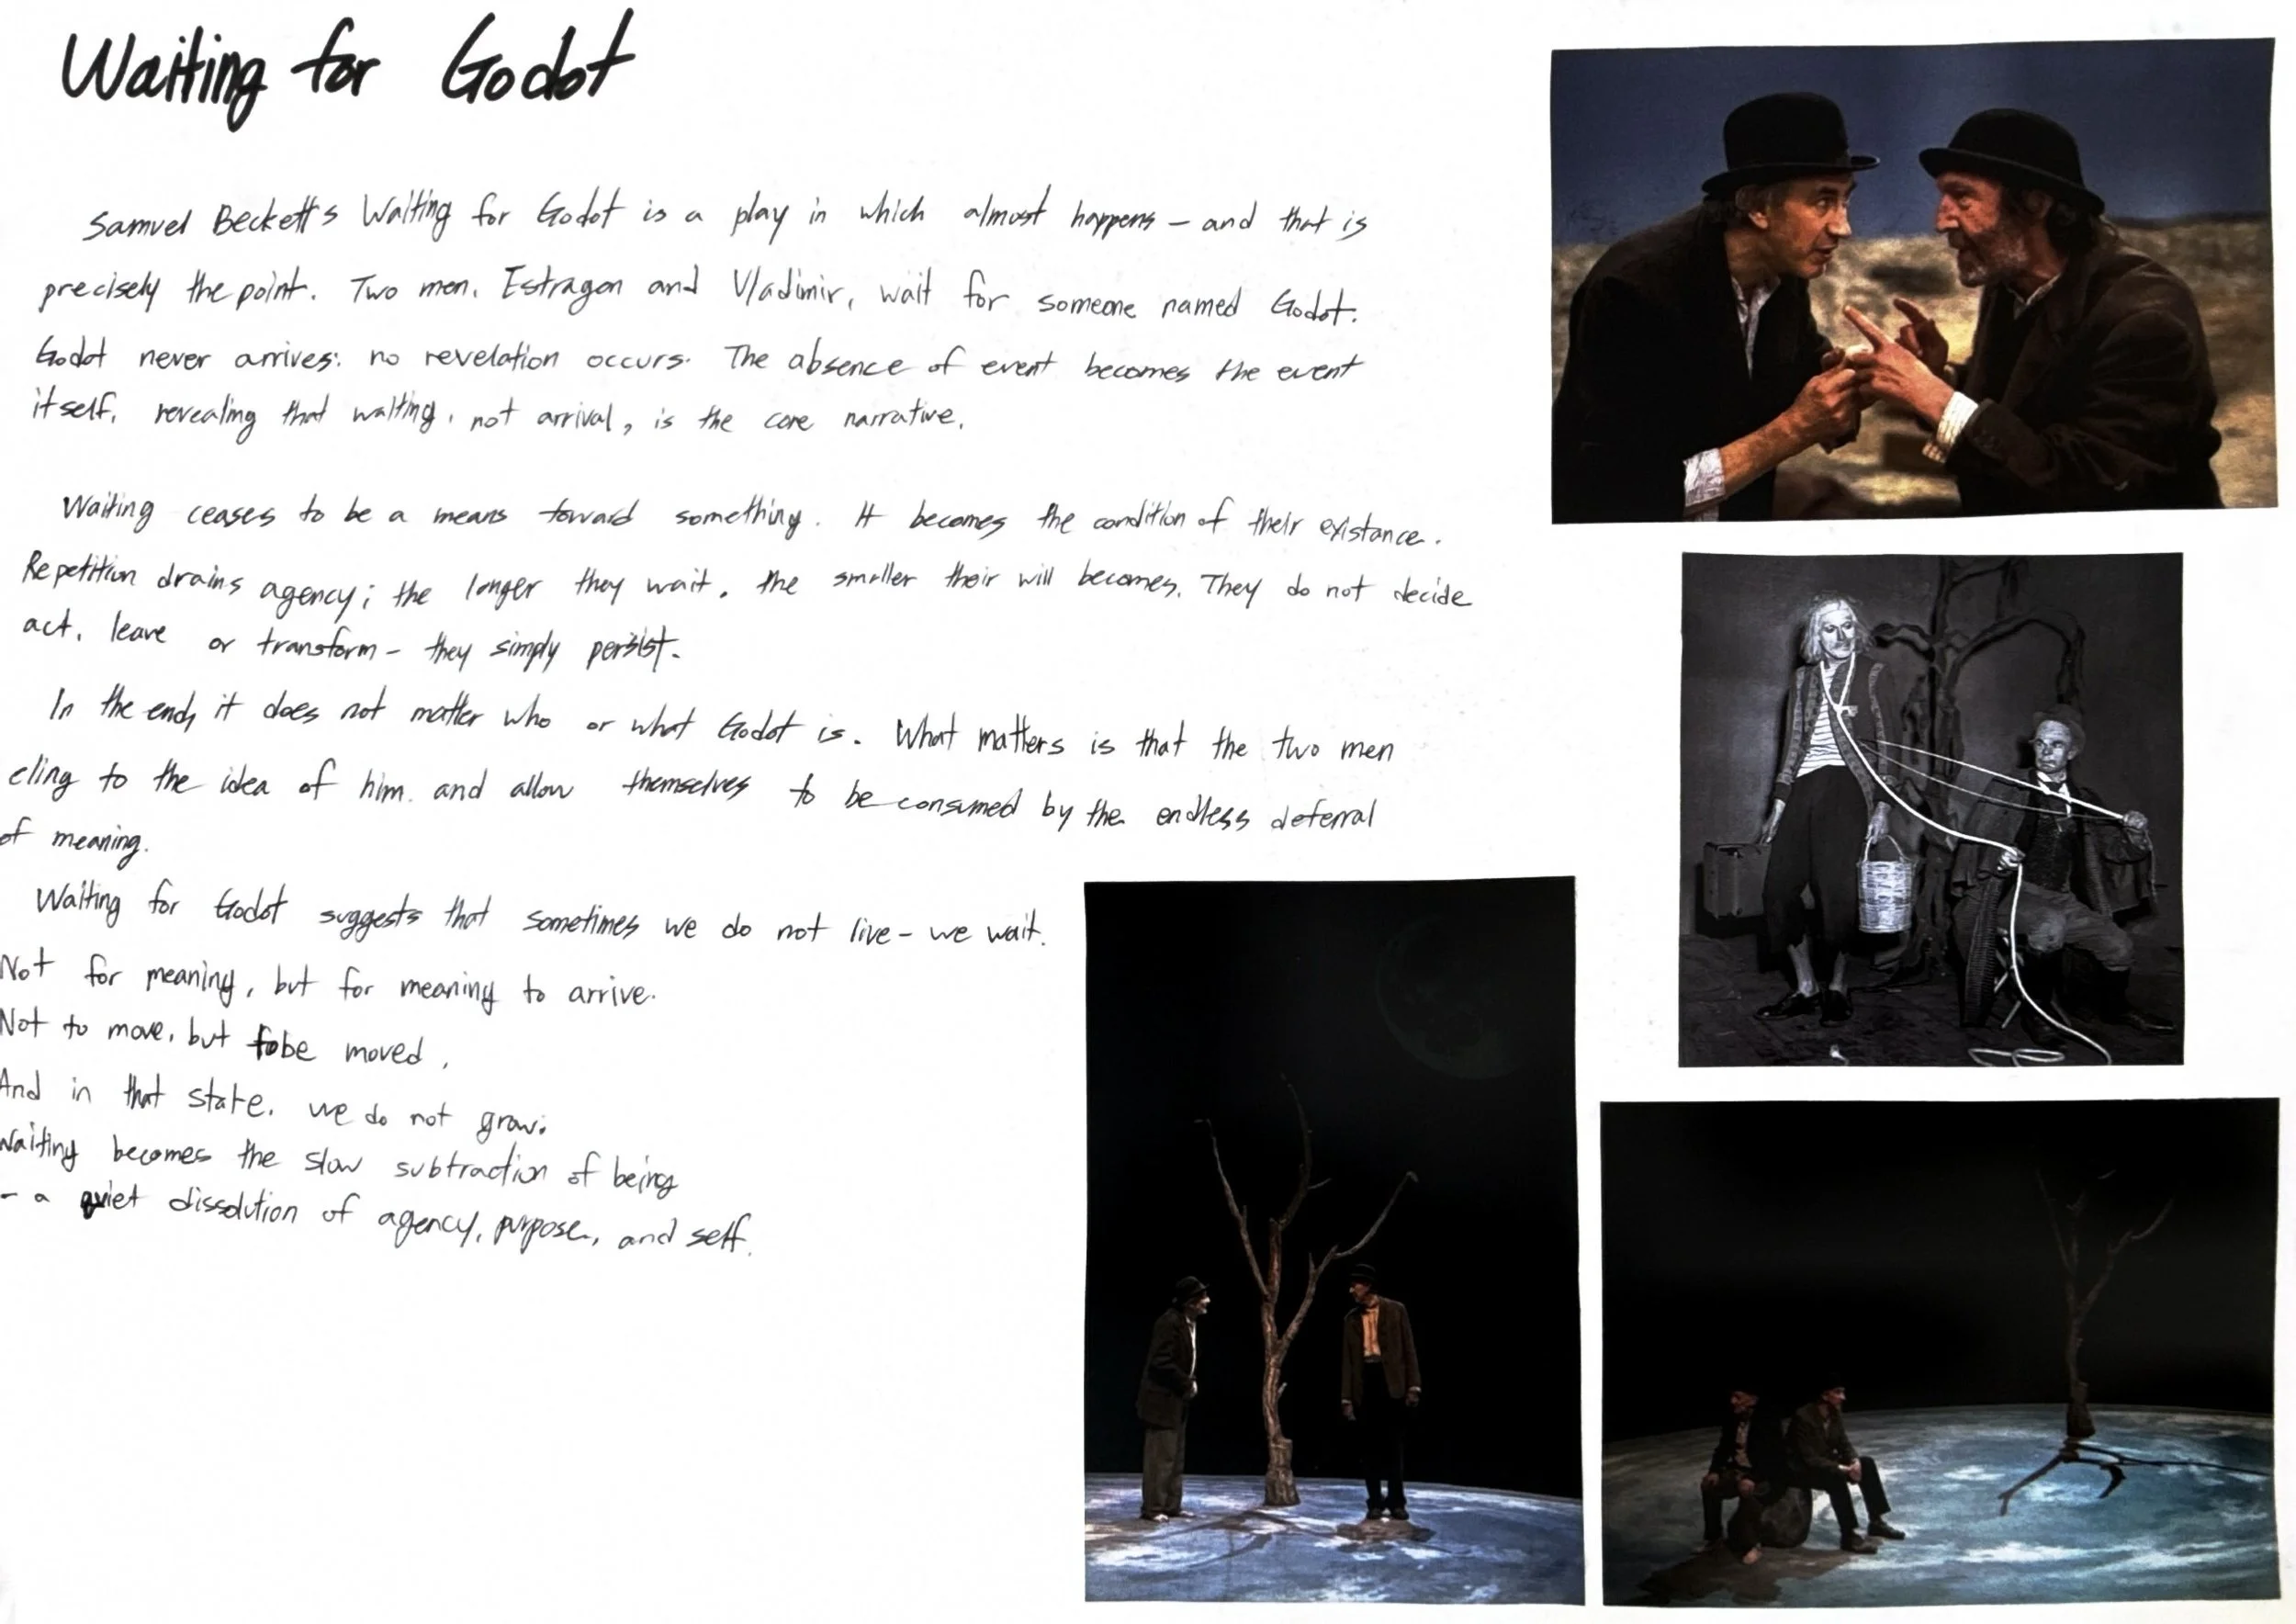 Waiting for Godot
Samuel Beckett's Waiting for Godot is a play in which almost happens – and that is
precisely the point. Two men, Estragon and Vladimir, wait for someone named Godot.
Godot never arrives: no revelation occurs. The absence of event becomes the event
itself, revealing that waiting, not arrival, is the core narrative.
Waiting ceases to be a means toward something. It becomes the condition of their existance.
Repetition drains agency; the longer they wait, the smaller their will becomes. They do not decide
act, leave or transform – they simply persist.
In the end, it does not matter who or what Godot is. What matters is that the two men
cling to the idea of him. and allow themselves to be consumed by the endless deferral
of meaning.
Waiting for Godot suggests that sometimes we do not live – we wait.
Not for meaning, but for meaning to arrive.
Not to move, but to be moved,
And in that state, we do not grow:
Waiting becomes the slow subtraction of being
– a quiet dissolution of agency, purpose, and self.